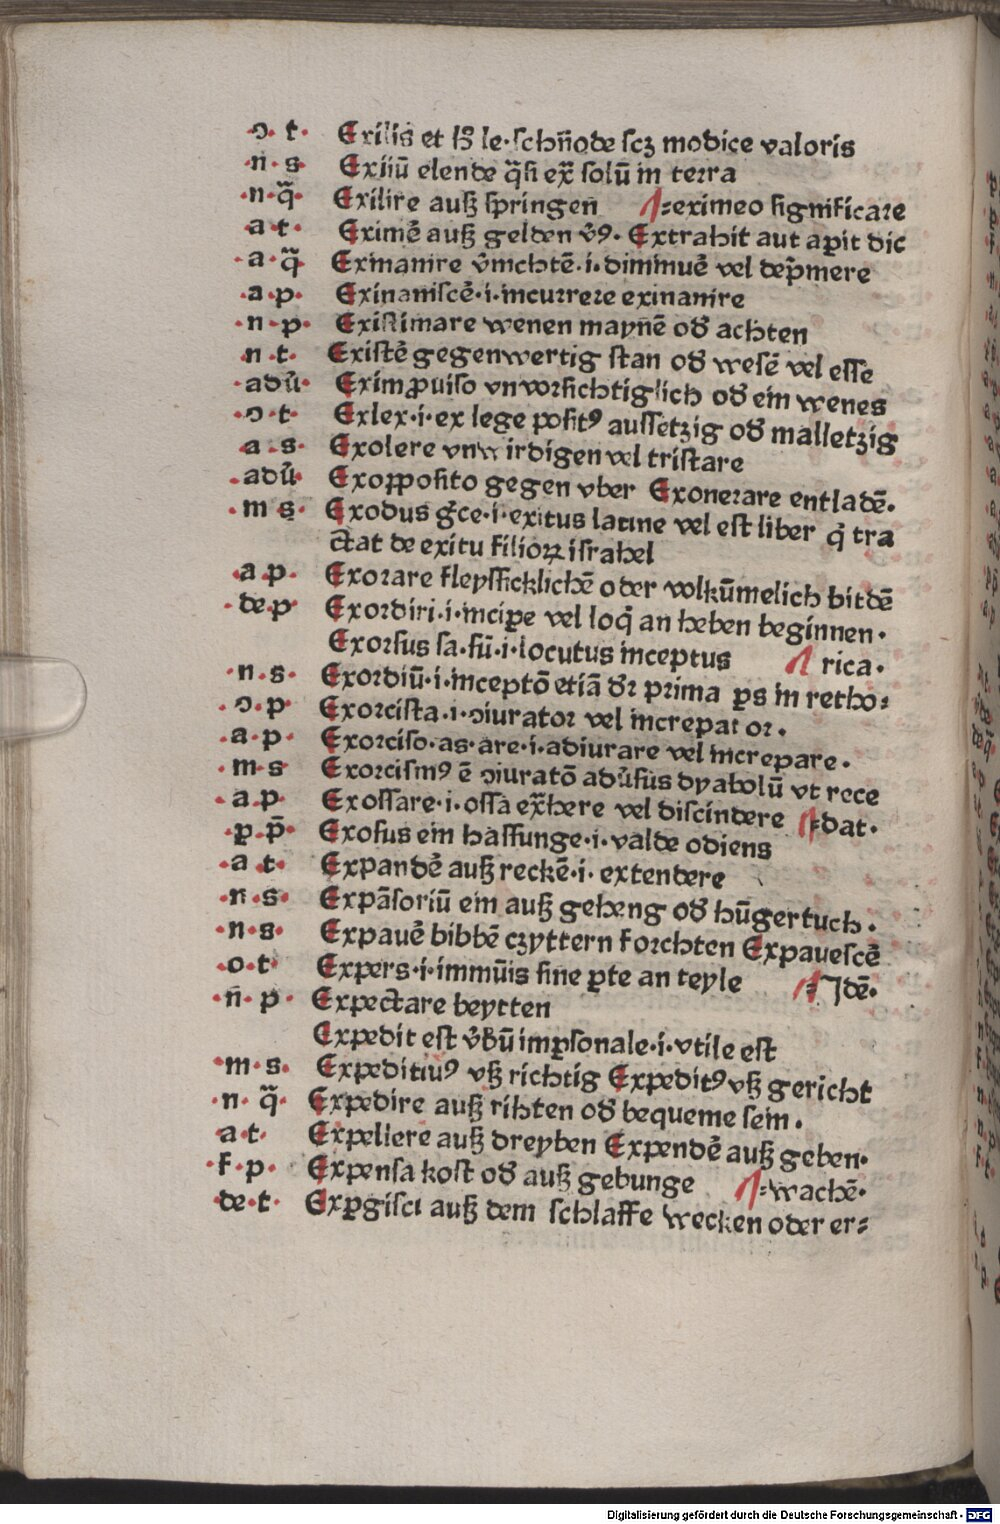 ɔ· t· Exilis et hͦ le·schn̄ode scꝫ modice valoris
n· s· Exiiū elende q̄si ex̄ solū in terra
·n·q̄· Exilire auß springen =eximeo significare
·a t· Eximē auß gelden v̄ꝰ· Extrahit aut aꝑit dic
·a·q̄ Exinanire v̄nichtē·i·diminuē vel dep̄mere
·a·p· Exinaniscē·i·incurrere exinanire
·n·p· Existimare wenen maynē od̄ achten
n·t· Existē gegenwertig stan od̄ wesē vel esse
·adū· Eximꝓuiso vnvorsichtiglich od̄ ein wenes
·ɔ·t· Exlex·i·ex lege positꝰ aussetzig od̄ malletzig
a·s· Exolere vnwirdigen vel tristare
·adū· Exoꝓposito gegen vber Exonerare entladē·
·m s· Exodus gͨce·i·exitus latine vel est liber q̇ tra
ctat de exitu filioꝝ israhel
·a p· Exorare fleyssicklichē oder volkūmelich bitdē
·de·p Exordiri·i·inciꝑe vel loq̇ an heben beginnen·
Exorsus sa·sū·i·locutus inceptus rica·
·n·s· Exordiū·i·inceptō etiā dr̄ prima ꝑs in retho=
·ɔ·p· Exorcista·i·ɔiurator vel increpator·
·a·p· Exorciso·as·are·i·adiurare vel increpare·
·m·s Exorcismꝰ ē ɔiuratō adūsus dyabolū vt rece
·a·p· Exossare·i·ossa ex̄here vel discindere =dat·
·ꝑ·p̄· Exosus ein hassunge·i·valde odiens
·a t· Expandē auß reckē·i·extendere
·n·s· Expāsoriū ein auß geheng od̄ hūgertuch·
·n·s· Expauē bibbē czyttern forchten Expauescē
·o·t· Expers·i·immūis sine ꝑte an teyle =Jdē·
·n·p· Expectare beytten
Expedit est v̄bū imꝑsonale·i·vtile est
·m·s· Expeditiuꝰ vß richtig Expeditꝰ vß gericht
·n·q̄· Expedire auß rihten od̄ bequeme sein·
·a t· Expellere auß dreyben Expendē auß geben·
·f·p· Expensa kost od̄ auß gebunge =wachē·
·de·t· Exꝑgisci auß dem schlaffe wecken oder er=
Digitalisierung gefördert durch die Deutsche Forschungsgemeinschaft - DFG